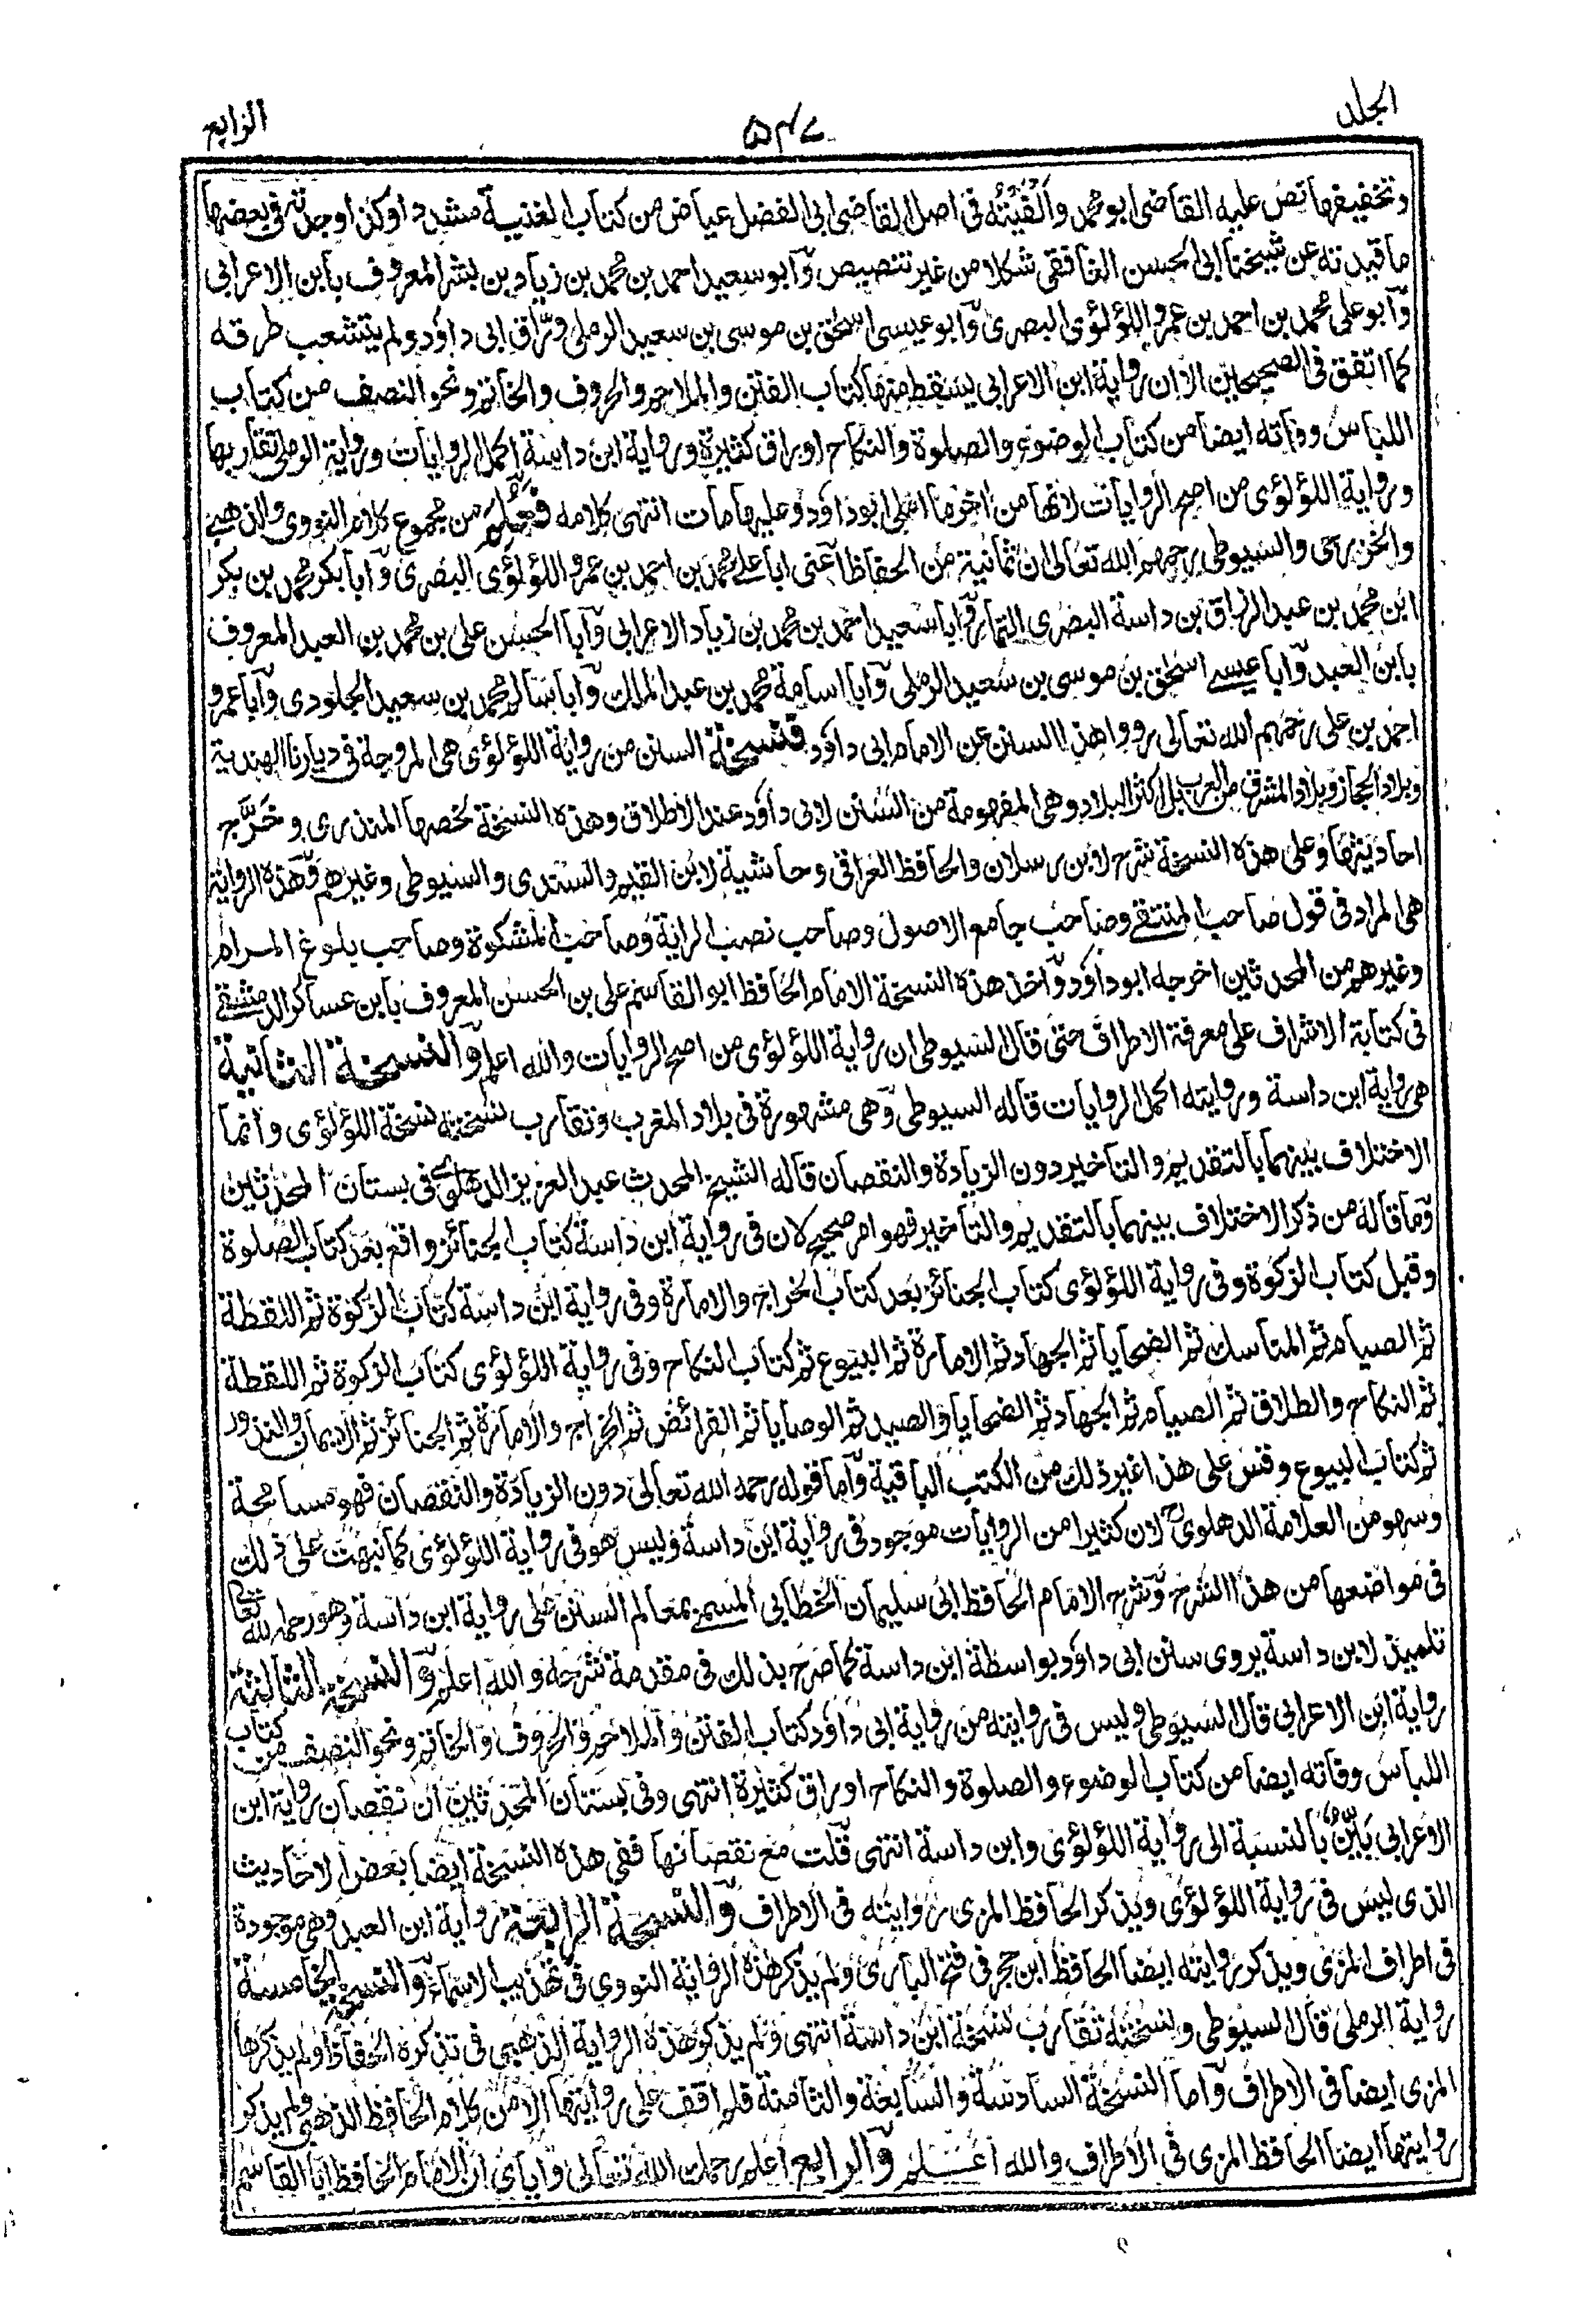 الجلد
۵۴۷
الرابع
وتخفيفها نص عليه القاضى ابو محمد وألفيته فى اصل القاضى ابى الفضل عياض من كتاب الغنية مشددا وكذا وجدته فى بعضها
ما قيدته عن شيخنا ابى الحسن الغافقى شكلا من غير تنصيص وآبو سعيد احمد بن محمد بن زياد بن بشر المعروف بابن الاعرابى
وآبو على محمد بن احمد بن عمرو اللؤلؤى البصرى وآبو عيسى اسحق بن موسى بن سعيد الرملى ورّاق ابى داؤد ولم يتشعب طرقه
كما اتفق فى الصحيحين الا ان رواية ابن الاعرابى يسقط منها كتاب الفتن والملاحم والحروف والخاتم ونحو النصف من كتاب
اللباس وفاته ايضا من كتاب الوضوء والصلوة والنكاح اوراق كثيرة ورواية ابن داسة اكمل الروايات ورواية الرملى تقاربها
ورواية اللؤلؤى من اصح الروايات لانها من اخر ما املى ابو داؤد وعليها مات انتهى كلامه فعلم من مجموع كلام النووى والذهبى
والخزرجى والسيوطى رحمهم الله تعالى ان ثمانية من الحفاظ اعنى ابا على محمد بن احمد بن عمرو اللؤلؤى البصرى وآبا بكر محمد بن بكر
ابن محمد بن عبد الرزاق بن داسة البصرى التمار وآبا سعيد احمد بن محمد بن زياد الاعرابى وآبا الحسن على بن محمد بن العبد المعروف
بابن العبد وآبا عيسى اسحق بن موسى بن سعيد الرملى وآبا اسامة محمد بن عبد الملك وآبا سالم محمد بن سعيد الجلودى وآبا عمرو
احمد بن على رحمهم الله تعالى رووا هذا السنن عن الامام ابى داؤد فنسخة السنن من رواية اللؤلؤى هى المروجة فى ديارنا الهندية
وبلاد الحجاز وبلاد المشرق من العرب بل اكثر البلاد وهى المفهومة من السنن لابى داؤد عند الاطلاق وهذه النسخة لخصها المنذرى وخرّج
احاديثها وعلى هذه النسخة شرح لابن رسلان والحافظ العراقى وحاشية لابن القيم والسندى والسيوطى وغيرهم وّهذه الرواية
هى المراد فى قول صاحب المنتقى وصاحب جامع الاصول وصاحب نصب الراية وصاحب المشكوة وصاحب بلوغ المرام
وغيرهم من المحدثين اخرجه ابو داؤد وّاخذ هذه النسخة الامام الحافظ ابو القاسم على بن الحسن المعروف بابن عساكر الدمشقى
فى كتابه الاشراف على معرفة الاطراف حتى قال السيوطى ان رواية اللؤلؤى من اصح الروايات والله اعلم وّالنسخة الثانية
هى رواية ابن داسة وروايته اكمل الروايات قاله السيوطى وّهى مشهورة فى بلاد المغرب وتقارب نسخته نسخة اللؤلؤى وانما
الاختلاف بينهما بالتقديم والتاخير دون الزيادة والنقصان قاله الشيخ المحدث عبد العزيز الدهلوى فى بستان المحدثين
وّما قاله من ذكر الاختلاف بينهما بالتقديم والتاخير فهو امر صحيح لان فى رواية ابن داسة كتاب الجنائز واقع بعد كتاب الصلوة
وقبل كتاب الزكوة وفى رواية اللؤلؤى كتاب الجنائز بعد كتاب الخراج والامارة وفى رواية ابن داسة كتاب الزكوة ثم اللقطة
ثم الصيام ثم المناسك ثم الضحايا ثم الجهاد ثم الامارة ثم البيوع ثم كتاب النكاح وفى رواية اللؤلؤى كتاب الزكوة ثم اللقطة
ثم النكاح والطلاق ثم الصيام ثم الجهاد ثم الضحايا والصيد ثم الوصايا ثم الفرائض ثم الخراج والامارة ثم الجنائز ثم الايمان والنذور
ثم كتاب البيوع وقس على هذا غير ذلك من الكتب الباقية وآما قوله رحمه الله تعالى دون الزيادة والنقصان فهو مسامحة
وسهو من العلامة الدهلوى لان كثيرا من الروايات موجود فى رواية ابن داسة وليس هو فى رواية اللؤلؤى كما نبهت على ذلك
فى مواضعها من هذا الشرح وّشرح الامام الحافظ ابى سليمان الخطابى المسمى بمعالم السنن على رواية ابن داسة وهو رحمه الله تعالى
تلميذ لابن داسة يروى سنن ابى داؤد بواسطة ابن داسة كما صرح بذلك فى مقدمة شرحه والله اعلم وّالنسخة الثالثة
رواية ابن الاعرابى قال السيوطى وليس فى روايته من رواية ابى داؤد كتاب الفتن والملاحم والحروف والخاتم ونحو النصف من كتاب
اللباس وفاته ايضا من كتاب الوضوء والصلوة والنكاح اوراق كثيرة انتهى وفى بستان المحدثين ان نقصان رواية ابن
الاعرابى بيّنٌ بالنسبة الى رواية اللؤلؤى وابن داسة انتهى قلت مع نقصانها ففى هذه النسخة ايضا بعض الاحاديث
الذى ليس فى رواية اللؤلؤى ويذكر الحافظ المزى روايته فى الاطراف وّالنسخة الرابعة رواية ابن العبد وهى موجودة
فى اطراف المزى ويذكر روايته ايضا الحافظ ابن حجر فى فتح البارى ولم يذكر هذه الرواية النووى فى تهذيب الاسماء وّالنسخة الخامسة
رواية الرملى قال السيوطى ونسخته تقارب نسخة ابن داسة انتهى ولم يذكر هذه الرواية الذهبى فى تذكرة الحفاظ ولم يذكرها
المزى ايضا فى الاطراف وآما النسخة السادسة والسابعة والثامنة فلم اقف على روايتها الا من كلام الحافظ الذهبى ولم يذكر
روايتها ايضا الحافظ المزى فى الاطراف والله اعلم وّالرابع اعلم رحمك الله تعالى وآياى ان الامام الحافظ ابا القاسم